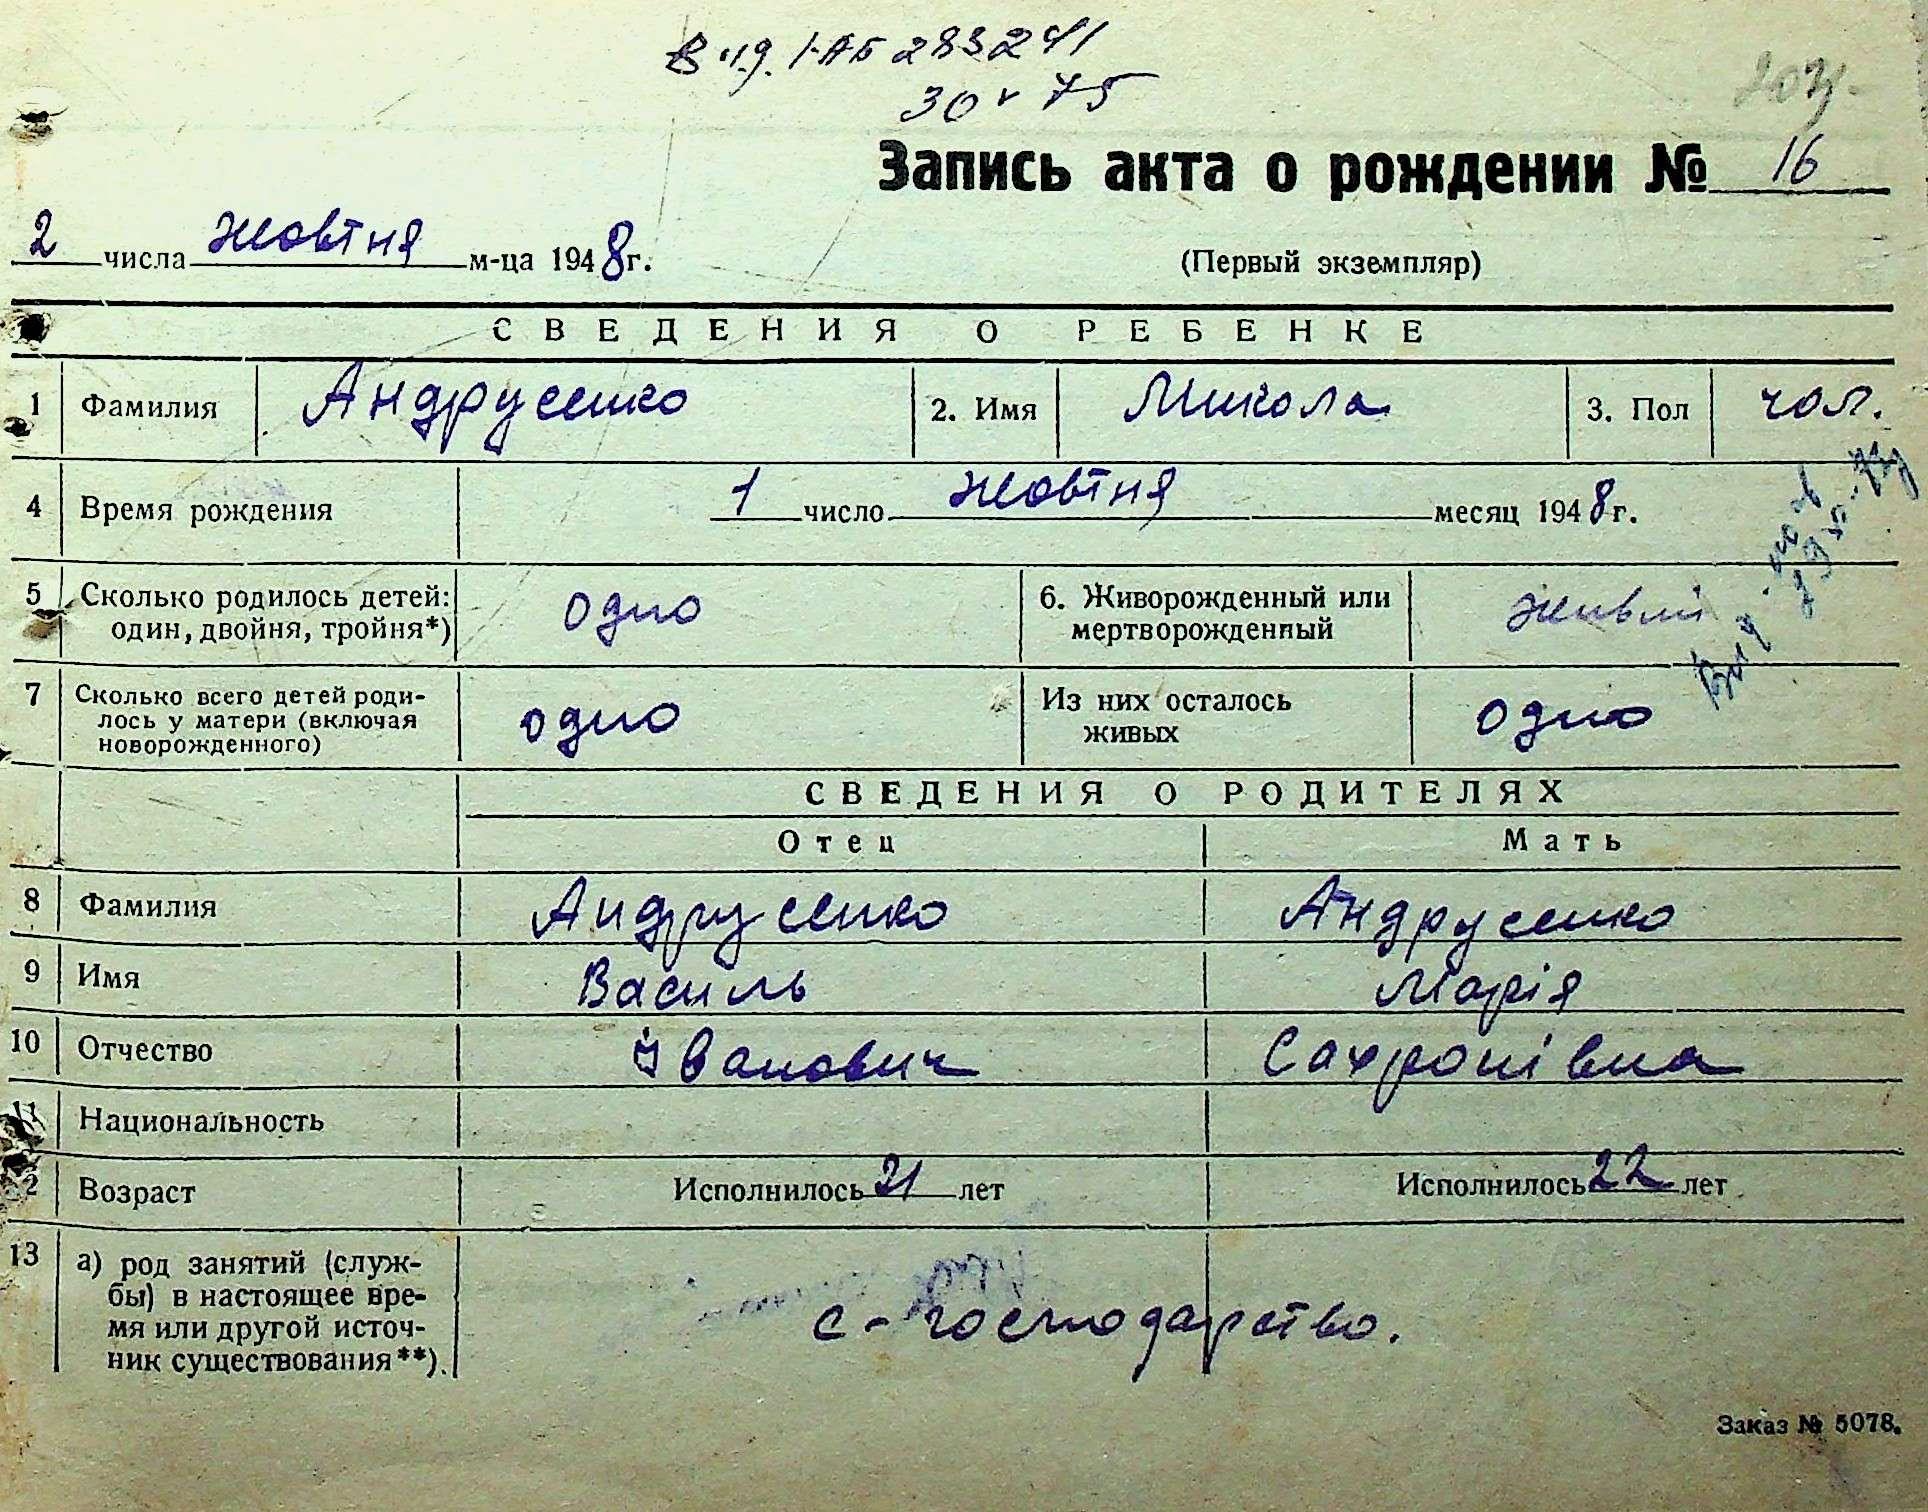 I-АБ 283241
30 v 75
203
Запись акта о рождении № 16
2 числа жовтня м-ца 1948 г.
(Первый экземпляр)
СВЕДЕНИЯ О РЕБЕНКЕ
1 Фамилия Андрусенко 2. Имя Микола 3. Пол чол.
4 Время рождения 1 число жовтня месяц 1948 г.
5 Сколько родилось детей: один, двойня, тройня*) одно 6. Живорожденный или мертворожденный живий
7 Сколько всего детей родилось у матери (включая новорожденного) одно Из них осталось живых одно
СВЕДЕНИЯ О РОДИТЕЛЯХ
Отец Мать
8 Фамилия Андрусенко Андрусенко
9 Имя Василь Марія
10 Отчество Іванович Сафронівна
11 Национальность
12 Возраст Исполнилось 21 лет Исполнилось 22 лет
13 а) род занятий (служ-
бы) в настоящее вре-
мя или другой источ-
ник существования**).
с-господарство.
Заказ № 5078.